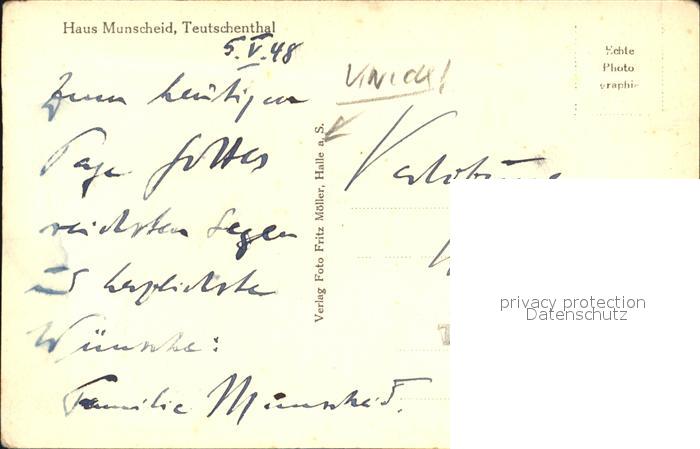 Haus Munscheid, Teutschenthal
5.V.48
Zum heutigen
Tage Gottes
reichsten Segen
herzlichste
Wünsche:
Familie Munscheid.
Verlag Foto Fritz Möller, Halle a. S.
Echte
Photo
graphie
privacy protection
Datenschutz